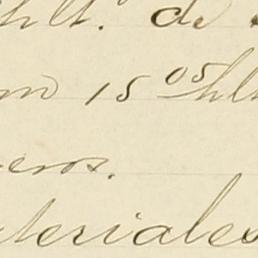 hlt. de
m 15 05 hlt
eros.
teriales